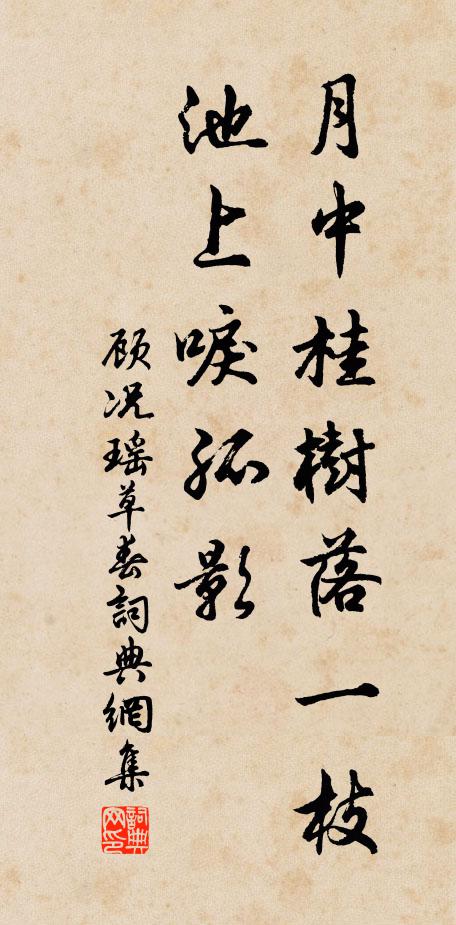 月中桂樹落一枝
池上唳孤影
顾况瑶草春詞典網集
詞典网印